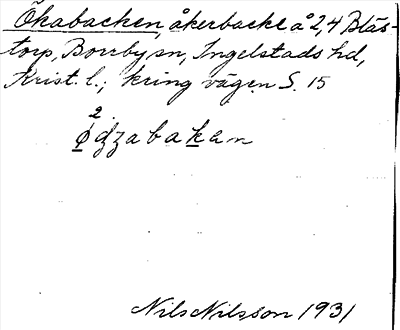 Ökabacken, åkerbacke å 2,4 Blås-
torp, Borrby sn, Ingelstads hd,
Krist. l.; kring vägen S. 15
2.
Nils Nilsson 1931